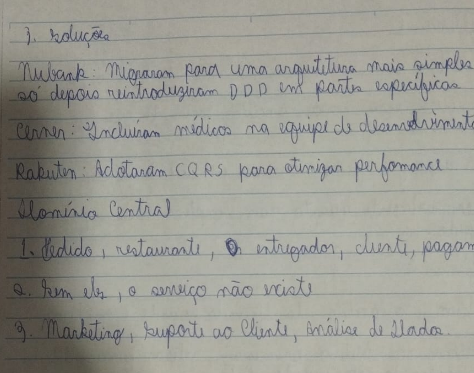 3. Soluções
Nubank: Migraram para uma arquitetura mais simples
só depois reintroduziram DDD em partes específicas
Cerner: Incluíram médicos na equipe de desenvolviment
Rakuten: Adotaram CQRS para otimizar perfomance
Domínio Central
1. Pedido, restaurante, entregador, cliente, pagam
2. Sem eles, o serviço não existe
3. Marketing, suporte ao Cliente, Análise de Dados.